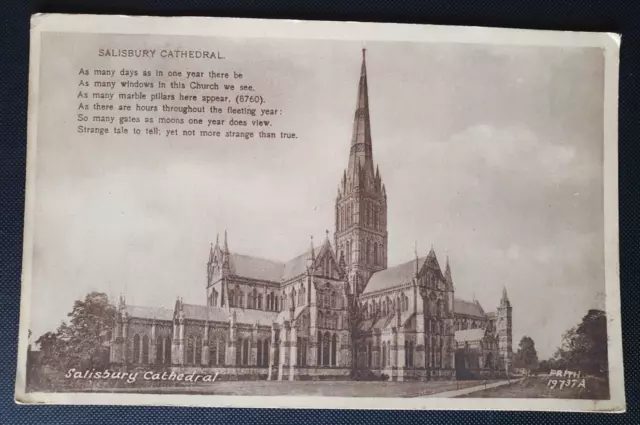 SALISBURY CATHEDRAL.
As many days as in one year there be
As many windows in this Church we see.
As many marble pillars here appear, (8760).
As there are hours throughout the fleeting year:
So many gates as moons one year does view.
Strange tale to tell; yet not more strange than true.
Salisbury Cathedral
FRITH
19737A